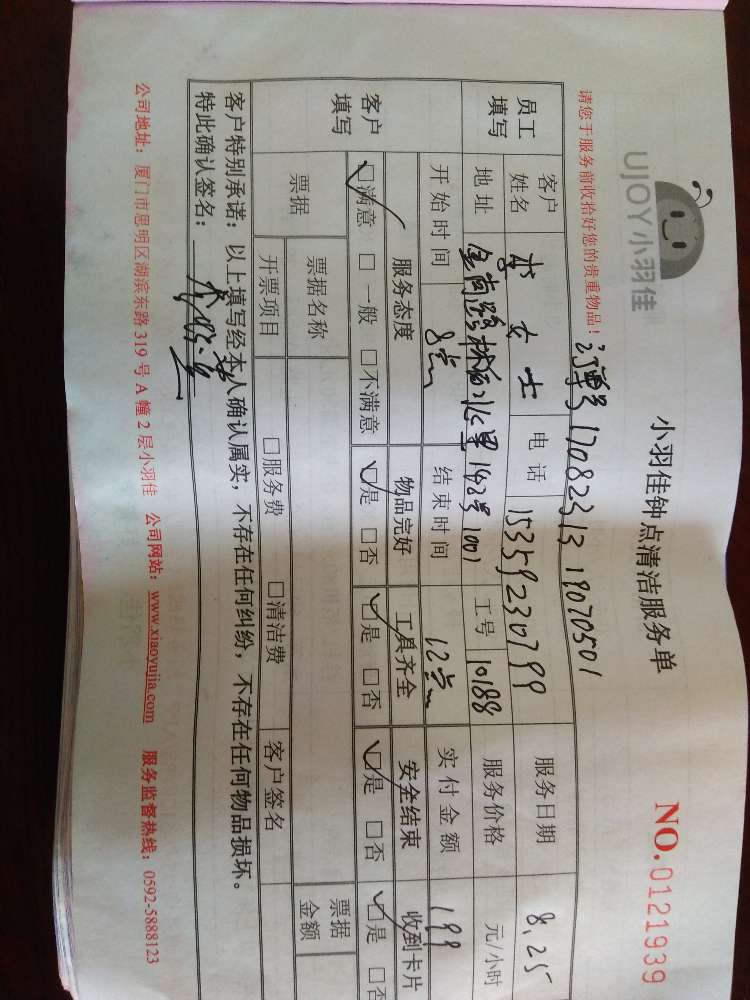 UJOY小羽佳
小羽佳钟点清洁服务单
NO.0121939
请您于服务前收拾好您的贵重物品！
订单号 17082313 19070501
员工填写 客户姓名 李女士 电话 15359230799 服务日期 8.25
地址 林后北里142号1001 工号 10188 服务价格 元/小时
开始时间 8点 结束时间 12点 实付金额 199
客户填写 服务态度 物品完好 工具齐全 安全结束 收到卡片
□满意 □一般 □不满意 □是 □否 □是 □否 □是 □否 □是 □否
票据 票据名称 票据金额
开票项目 □服务费 □清洁费 客户签名
客户特别承诺：以上填写经本人确认属实，不存在任何纠纷，不存在任何物品损坏。
特此确认签名：
公司地址：厦门市思明区湖滨东路319号A幢2层小羽佳 公司网站：www.xiaoyujia.com 服务监督热线：0592-5888123